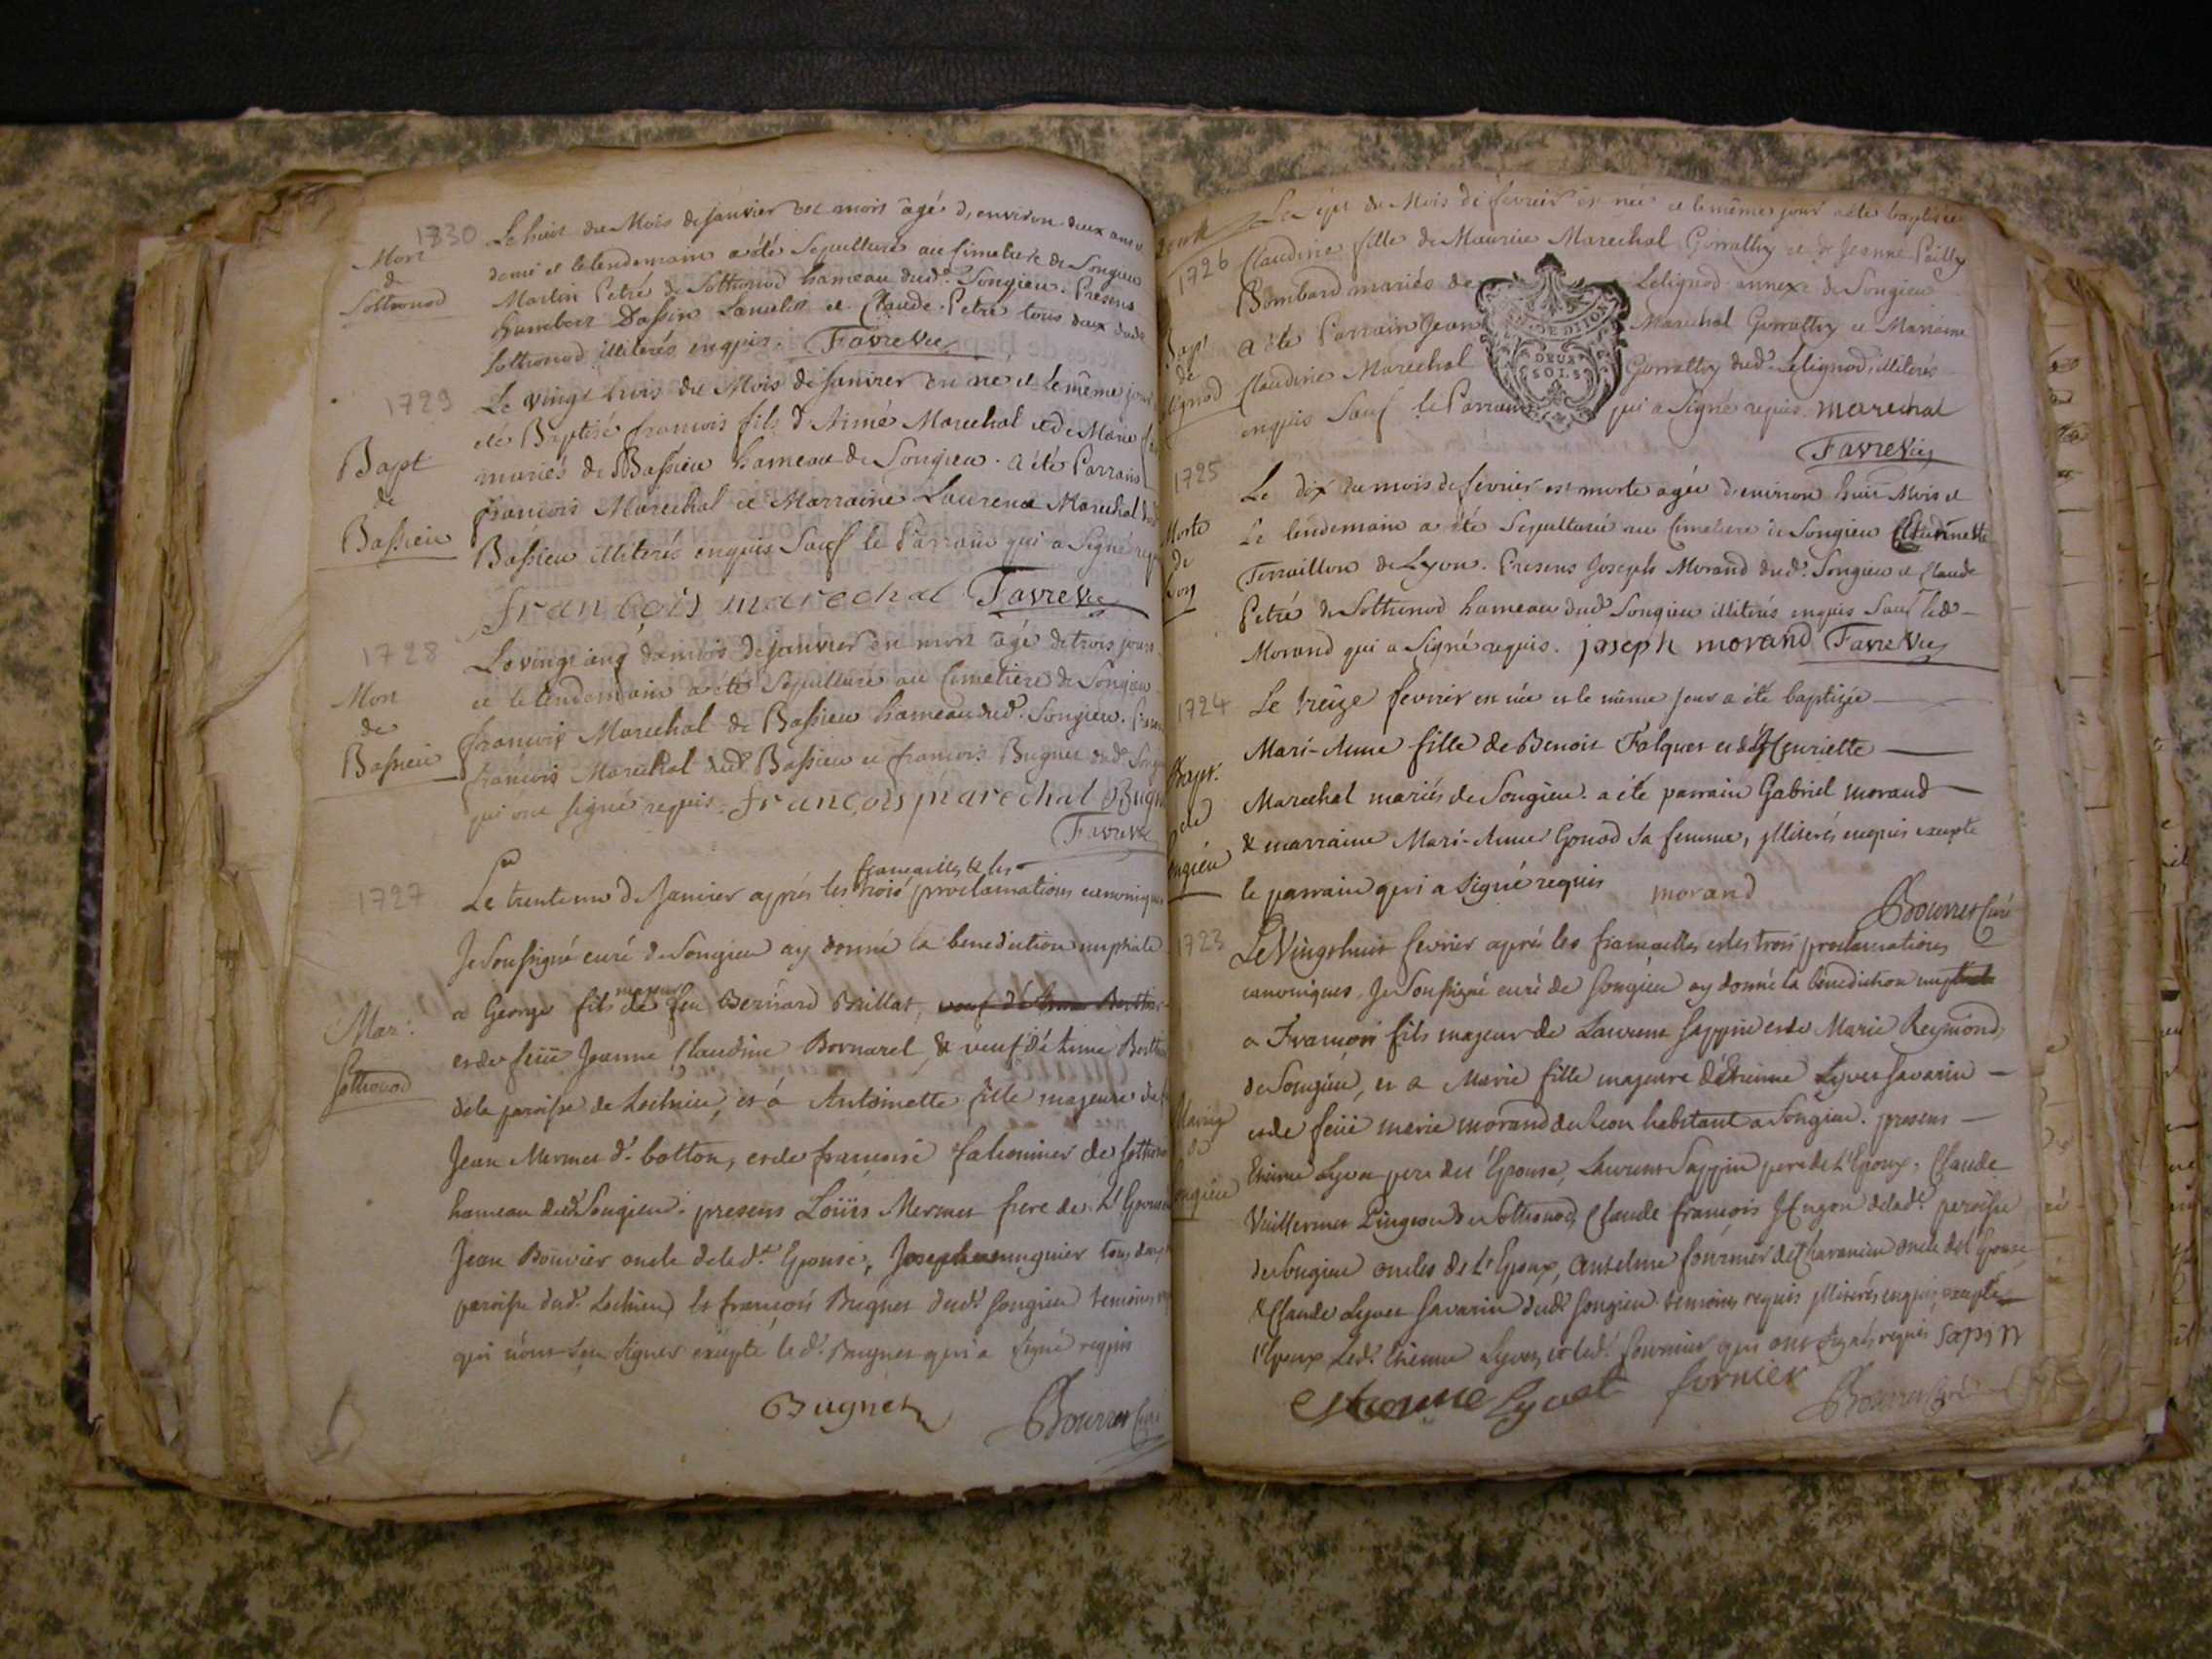 1730
Mort
de
Sothonod
Le huit du Mois de janvier est mort agé d'environ deux ans et
demi et le lendemain a été Sepulturé au cimetiere de Songieu
Martin Petré de Sothonod hameau dud. Songieu. Presens
humbert Dassin et Claude Petré tous deux dud
Sothonod illiterés enquis. Favre Vic
1729
Bapt
de
Bassieu
Le vingt trois du Mois de Janvier est né et le même jour
été Baptisé francois fils d'Aimé Marechal et de Marie
mariés de Bassieu hameau de Songieu. a été Parrain
francois Marechal et Marraine Laurence Marechal dud
Bassieu illiterés enquis Sauf le Parrain qui a Signé requis
françois marechal Favre Vic
1728
Mort
de
Bassieu
Le vingt cinq du mois de janvier est mort agé de trois jours
et le lendemain a été Sepulturé au Cimetiere de Songieu
francois Marechal de Bassieu hameau dud. Songieu.
francois Marechal dud. Bassieu et francois Bugnet dud.
qui ont signé requis. françois marechal Bugn
Favre Vic
1727
Mar:
Sothonod
Le trente un de Janvier aprés les fiancailles & les trois proclamations canoniques
Je Soussigné curé de Songieu ay donné la benediction nuptiale
a George fils majeur de feu Bernard Brillat,
et de feüe Jeanne Claudine Bornarel & veuf d'étiene
de la paroisse de Lochieu, et á Antoinette fille majeure de
Jean Mermet d. botton, et de francoise de Sothonod
hameau dud. Songieu. presens Loüis Mermet frere de L'Epouse
Jean Bouvier oncle de led.t Epouse, Joseph tous deux
paroisse dud. Lochieu, et francois Bugnet dud. Songieu temoins
qui n'ont sçu signer excepté le d. Bugnet qui a signé requis
Bugnet Bourret Curé
1726
Bapt
de
Le sept du Mois de fevrier est née et le même jour a été baptisée
Claudine fille de Maurice Marechal Gorrattey et de Jeanne Pailly
Bombard mariés de Lelignod annexe de Songieu
a été Parrain Jean Marechal Gorrattey et Marraine
Claudine Marechal Gorrattey dud. Lelignod, illiterés
enquis Sauf le Parrain qui a Signé requis. marechal
DE DIJON
DEUX
SOLS
Favre Vic
1725
Morte
de
Song
Le dix du mois de fevrier est morte agée d'environ huit Mois et
Le lendemain a été Sepulturée au Cimetiere de Songieu Claudinette
Terraillon de Lyon. Presens Joseph Morand dud. Songieu et Claude
Petré de Sothonod hameau dud. Songieu illiterés enquis Sauf led.
Morand qui a Signé requis. joseph morand Favre Vic
1724
Bapt.
de
Songieu
Le treize fevrier est née et le même jour a été baptizée
Mari-Anne fille de Benoit Falquet et de Henriette
Marechal mariés de Songieu. a été parrain Gabriel morand
& marraine Mari-Anne Gonod sa femme, illiterés enquis excepte
le parrain qui a signé requis morand
Bourret Curé
1723
Mariag
de
Songieu
Le Vingt huit fevrier aprés les fiancailles et les trois proclamations
canoniques, Je Soussigné curé de Songieu ay donné la bénédiction nuptiale
a Francois fils majeur de Laurent Sappin et de Marie Reymond,
de Songieu, et a Marie fille majeure d'étienne Lyvet Savarin
et de feüe marie morand de Lion habitant a Songieu. presens
Etienne Lyvet pere de l'Epouse, Laurent Sappin pere de L'Epoux, Claude
Vuillermet Pingeon de Sothonod, Claude francois Jengon de lad.e paroisse
de Songieu oncles de L'Epoux, Anselme fournier de Charancin oncle de l'Epouse
& Claude Lyvet Savarin dud. Songieu temoins requis illiterés enquis, excepté
l'Epoux, Led. Etienne Lyvet, et led. fournier qui ont signés requis sapin
Etienne Lyvet fornier Bourret Curé